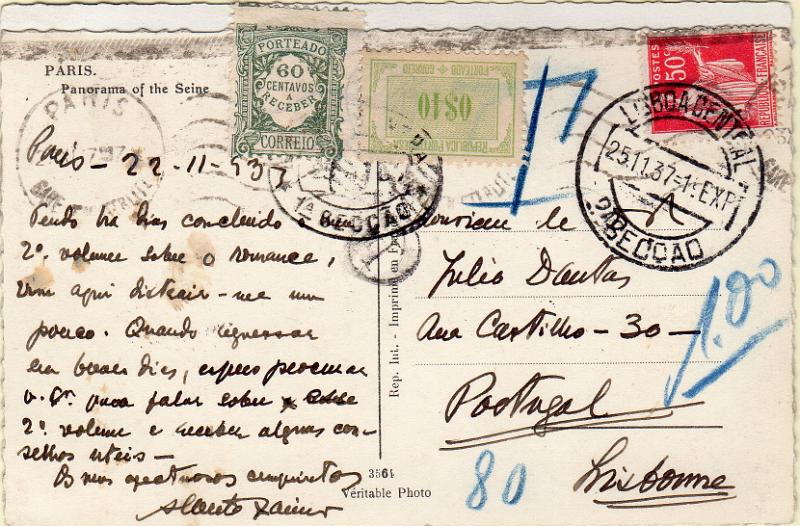 PARIS.
Panorama of the Seine
PORTEADO
60
CENTAVOS
A
RECEBER
CORREIO
PORTEADO CORREIO
0$40
REPUBLICA PORTUGUESA
POSTES
50c
REPUBLIQUE FRANÇAISE
PARIS
LISBOA CENTRAL
25.11.37=1.EXP
2ªSECÇÃO
1ª SECÇÃO
T
Paris - 22-11-937
Tendo há dias concluido o meu
2º. volume sobre o romance,
vim aqui distrair-me um
pouco. Quando regressar
em breves dias, espero procurar
v. Exª. para falar sobre
2º. volume e receber alguns con-
selhos uteis-
Os meus afectuosos cumprimentos
Monsieur le
Julio Dantas
Rua Castilho - 30 -
Portugal
Lisbonne
1.00
80
T
3564
Véritable Photo
Rep. Int. - Imprimé en